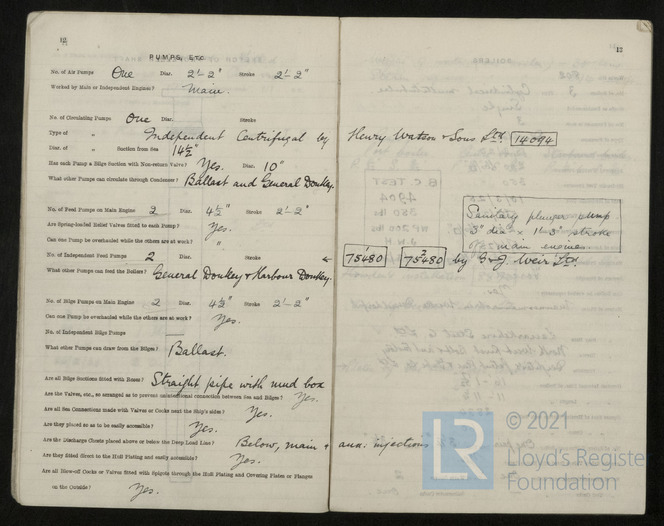 12
PUMPS, ETC
No. of Air Pumps One Diar. 2'-2" Stroke 2'-2"
Worked by Main or Independent Engines? Main.
No. of Circulating Pumps One Diar. Stroke
Type of " Independent Centrifugal by Henry Watson & Sons Ltd. 14094
Diar. of " Suction from Sea 14½"
Has each Pump a Bilge Suction with Non-return Valve? Yes. Diar. 10"
What other Pumps can circulate through Condenser? Ballast and General Donkey.
No. of Feed Pumps on Main Engine 2 Diar. 4½" Stroke 2'-2"
Are Spring-loaded Relief Valves fitted to each Pump? Yes.
Can one Pump be overhauled while the others are at work? "
No. of Independent Feed Pumps 2 Diar. Stroke 75480 75480 by G & J Weir Ltd.
What other Pumps can feed the Boilers? General Donkey & Harbour Donkey.
No. of Bilge Pumps on Main Engine 2 Diar. 4½" Stroke 2'-2"
Can one Pump be overhauled while the others are at work? Yes.
No. of Independent Bilge Pumps
What other Pumps can draw from the Bilges? Ballast.
Are all Bilge Suctions fitted with Roses? Straight pipe with mud box
Are the Valves, etc., so arranged as to prevent unintentional connection between Sea and Bilges? Yes.
Are all Sea Connections made with Valves or Cocks next the Ship's sides? Yes.
Are they placed so as to be easily accessible? Yes.
Are the Discharge Chests placed above or below the Deep Load Line? Below, main & aux. injections
Are they fitted direct to the Hull Plating and easily accessible? Yes.
Are all Blow-off Cocks or Valves fitted with Spigots through the Hull Plating and Covering Plates or Flanges
on the Outside? Yes.
13
Sanitary plunger pump
3" dia x 1'-3" stroke
off main engine
© 2021
LR
Lloyd's Register
Foundation